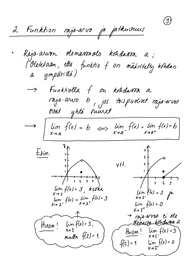 3
2. Funktion raja-arvo ja jatkuvuus
• Raja-arvon olemassaolo kohdassa a:
(Oletetaan, että funktio f on määritelty kohdan
a ympäristö)
→ Funktiolla f on kohdassa a
raja-arvo b, jos toispuoliset raja-arvot
ovat yhtä suuret
→ lim f(x) = b ⇔ lim f(x) = lim f(x) = b
x→a x→a⁻ x→a⁺
Esim.
vrt.
lim f(x) = 3, koska
x→2
lim f(x) = 3
lim f(x) = 3
lim f(x) = 3 ja
lim f(x) = 0
→ raja-arvo ei ole
kohdassa 2
Huom!
lim f(x) = 3,
x→2
mutta f(2) = 1
Huom!
f(2) = 1
lim f(x) = 3
lim f(x) = 0